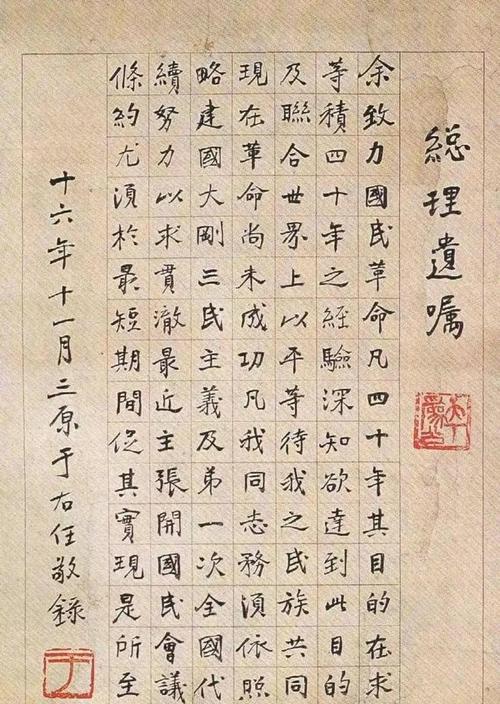 緫理遺嘱
余致力國民革命凡四十年其目的在求
等積四十年之經驗深知欲達到此目的
及聯合世界上以平等待我之民族共同
現在革命尚未成功凡我同志務須依照
略建國大剛三民主義及弟一次全國代
續努力以求貫澈最近主張開國民會議
條約尤須於最短期間促其實現是所至
十六年十一月三原于右任敬錄